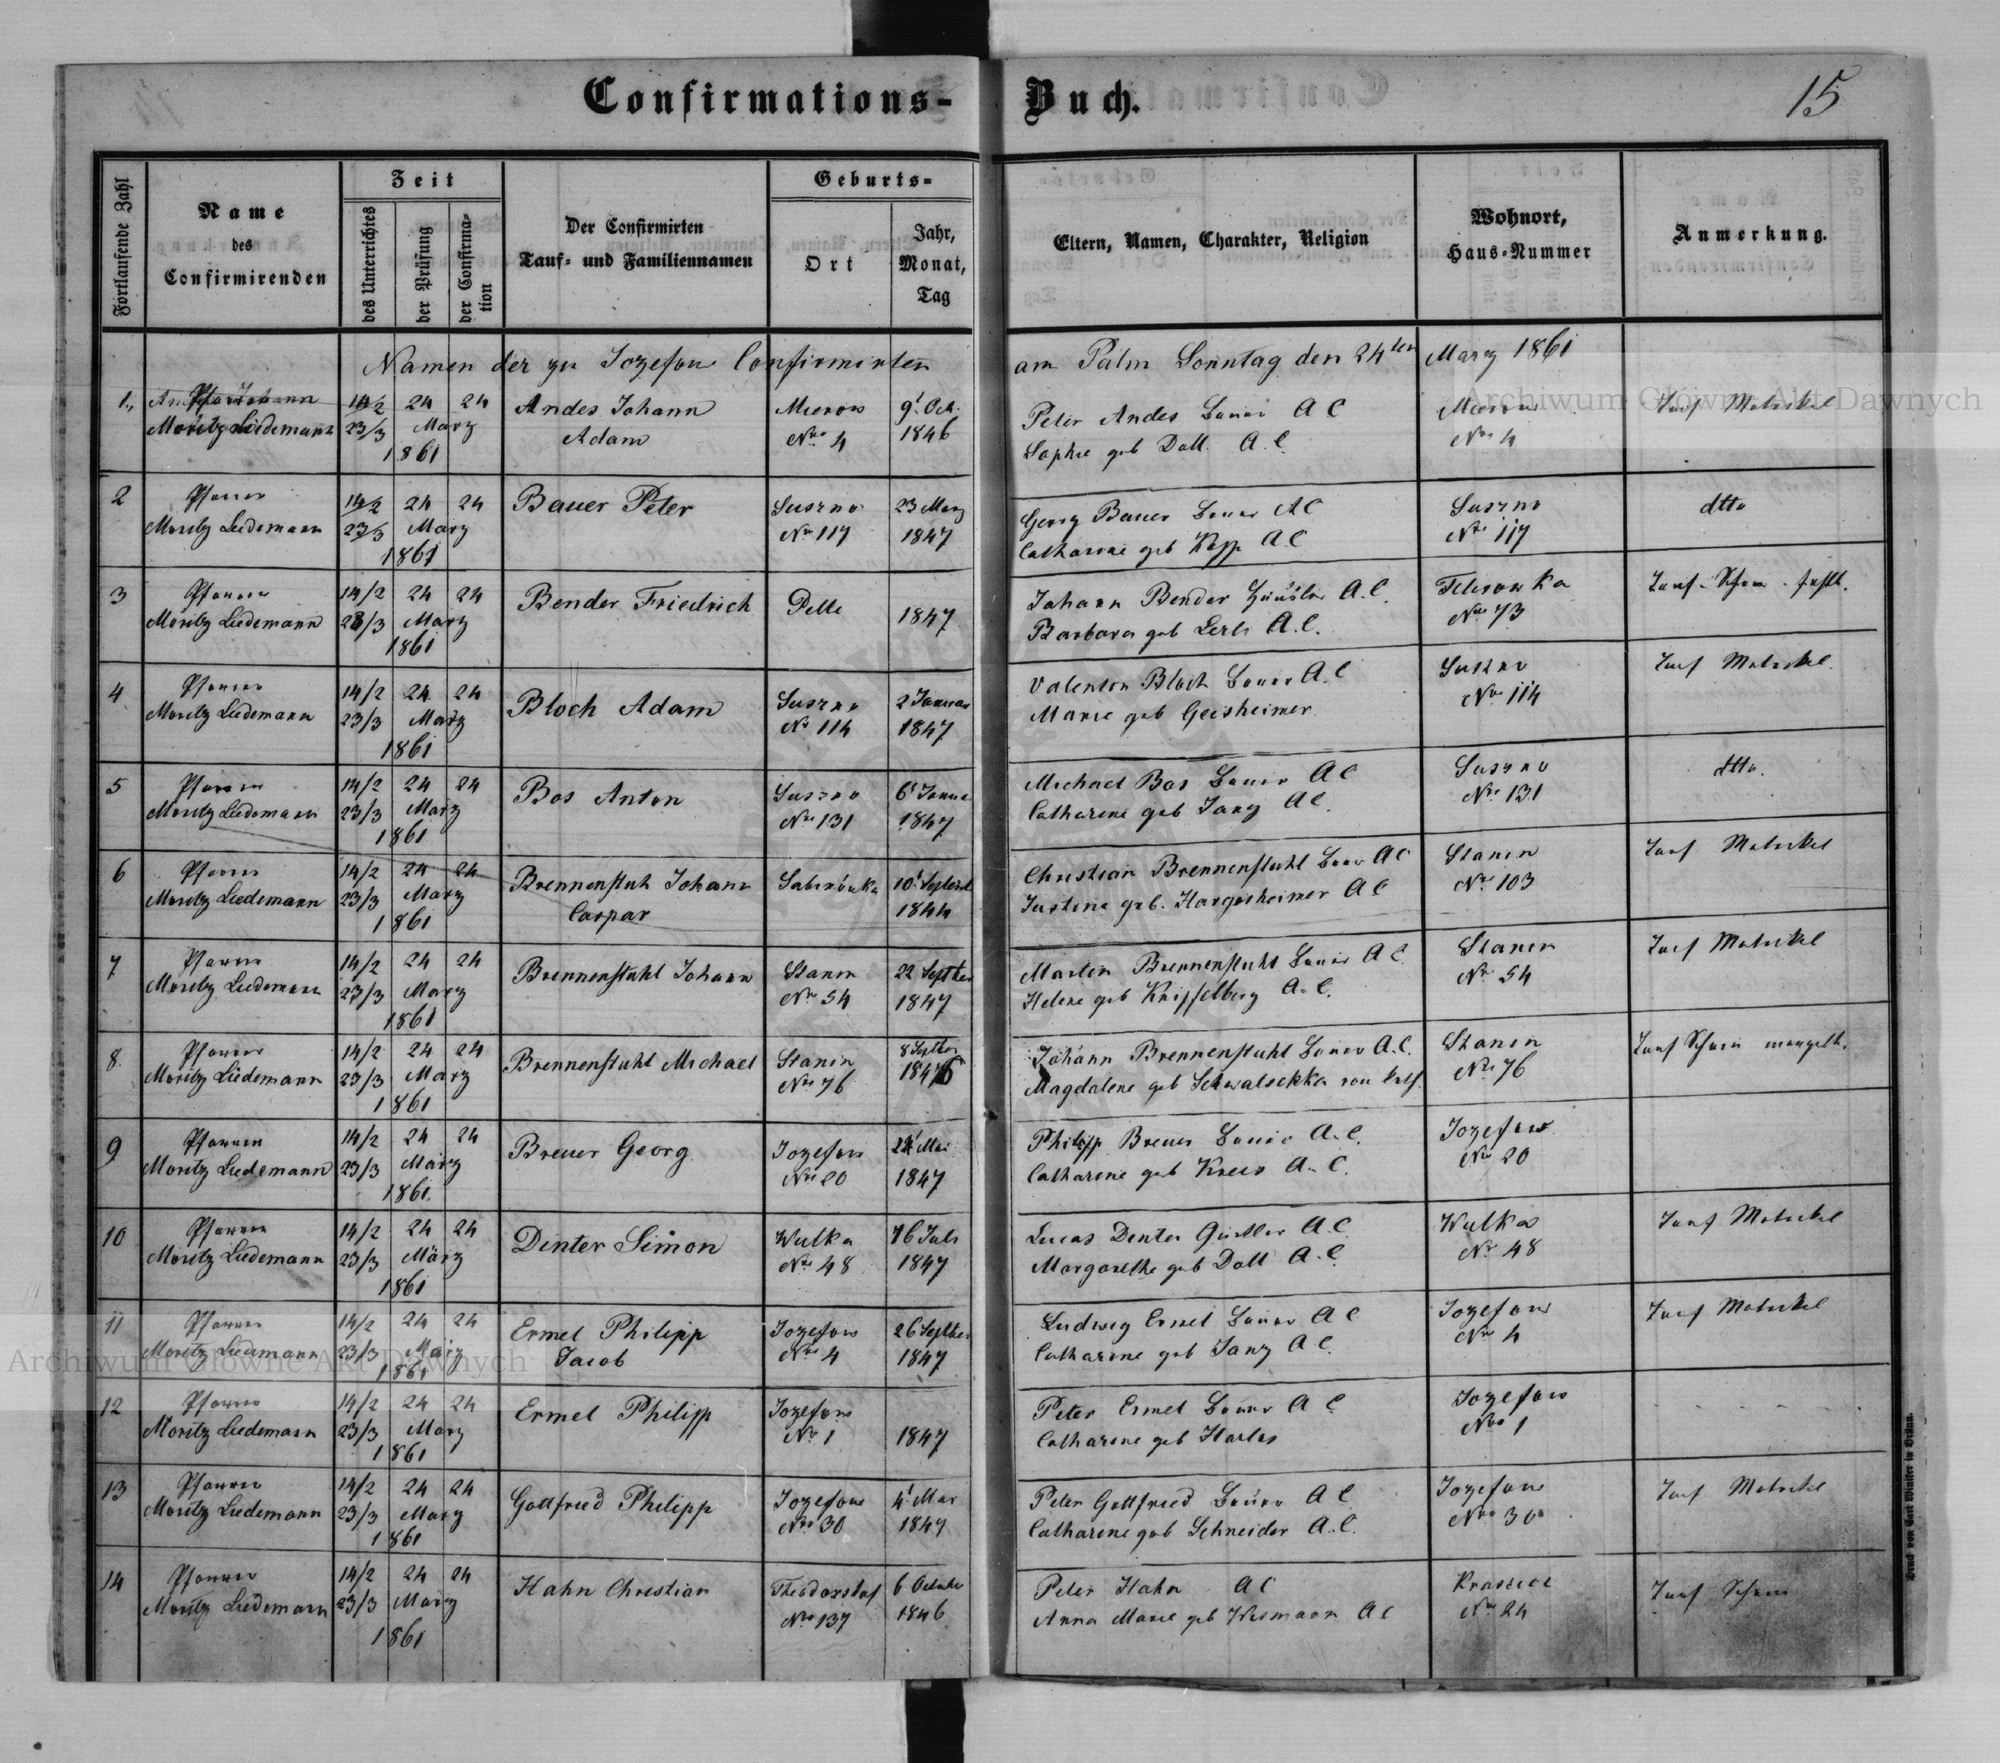 Confirmations-Buch.
15
Fortlaufende Zahl
Name des Confirmirenden
Zeit
des Unterrichtes
der Prüfung
der Confirmation
Der Confirmirten Tauf- und Familiennamen
Geburts-
Ort
Jahr, Monat, Tag
Eltern, Namen, Charakter, Religion
Wohnort, Haus-Nummer
Anmerkung.
Namen der zu Jozefow Confirmirten am Palm Sonntag den 24ten März 1861
1., Pfarrer 14/2 24 24 Andes Johann Mierow 9t Oct. Peter Andes Bauer A C Mierow Tauf Matrikel
Moritz Liedemann 23/3 März Adam Nro 4 1846 Sophie geb Doll. A. C. Nro 4
1861
2 Pfarrer 14/2 24 24 Bauer Peter Suszno 23 März Georg Bauer Bauer A C Suszno dtto
Moritz Liedemann 23/3 März Nro 117 1847 Catharine geb Kopp A C Nro 117
1861
3 Pfarrer 14/2 24 24 Bender Friedrich 1847 Johann Bender Häusler A. C. Nro 73
Moritz Liedemann 23/3 März Barbara geb A. C.
1861
4 Pfarrer 14/2 24 24 Bloch Adam Suszno 2 Januar Valentin Bloch Bauer A. C Suszno Tauf Matrikel
Moritz Liedemann 23/3 März No 114 1847 Marie geb Geisheimer Nro 114
1861
5 Pfarrer 14/2 24 24 Bos Anton Suszno 6t Janua Michael Bos Bauer A C Suszno dtto.
Moritz Liedemann 23/3 März Nro 131 1847 Catharine geb Janz A C. Nro 131
1861
6 Pfarrer 14/2 24 24 Brennenstuh Johann Sabinówka 10t Septemb Christian Brennenstuhl Bauer A C Stanin Tauf Matrikel
Moritz Liedemann 23/3 März Caspar 1844 Justine geb. Hargesheimer A C Nro 103
1861
7 Pfarrer 14/2 24 24 Brennenstuhl Johann Stanin 22 Septber Martin Brennenstuhl Bauer A C Stanin Tauf Matrikel
Moritz Liedemann 23/3 März Nro 54 1847 Helene geb Knipfelberg A. C. Nro 54
1861
8. Pfarrer 14/2 24 24 Brennenstuhl Michael Stanin 8 Septber Johann Brennenstuhl Bauer A. C. Stanin Tauf Schein mangelt.
Moritz Liedemann 23/3 März Nro 76 1846 Magdalene geb Nro 76
1861
9 Pfarrer 14/2 24 24 Breuer Georg Jozefow 24t Mai Philipp Breuer Bauer A. C. Jozefow
Moritz Liedemann 23/3 März Nro 20 1847 Catharine geb A. C. Nro 20
1861
10 Pfarrer 14/2 24 24 Dinter Simon Wulka 16 Juli Lucas Dinter A. C. Wulka Tauf Matrikel
Moritz Liedemann 23/3 März Nro 48 1847 Margarethe geb Doll A. C. Nro 48
1861
11 Pfarrer 14/2 24 24 Ermel Philipp Jozefow 26 Septber Ludwig Ermel Bauer A C Jozefow Tauf Matrikel
Moritz Liedemann 23/3 März Jacob Nro 4 1847 Catharine geb Janz A C. Nro 4
1861
12 Pfarrer 14/2 24 24 Ermel Philipp Jozefow Peter Ermel Bauer A C Jozefow
Moritz Liedemann 23/3 März Nro 1 1847 Catharine geb Harlos Nro 1
1861
13 Pfarrer 14/2 24 24 Gottfried Philipp Jozefow 4t Mai Peter Gottfried Bauer A C Jozefow Tauf Matrikel
Moritz Liedemann 23/3 März Nro 30 1847 Catharine geb Schneider A. C. Nro 30
1861
14 Pfarrer 14/2 24 24 Hahn Christian Theodorshof 6 October Peter Hahn A C Nro 24 Tauf Schein
Moritz Liedemann 23/3 März Nro 137 1846 Anna Marie geb A C
1861
Druck von Carl Winiker in Brünn.
Archiwum Główne Akt Dawnych
Archiwum Główne Akt Dawnych